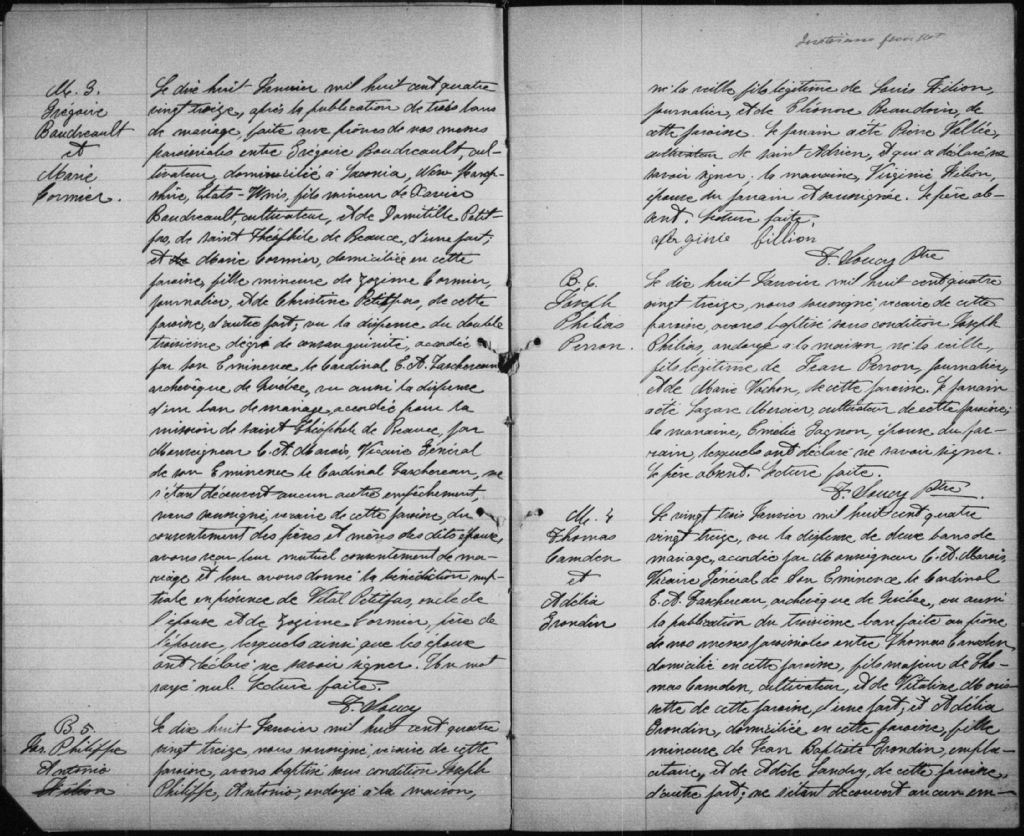 M. 3.
Grégoire
Baudreault
et
Marie
Cormier.
Le dix huit Janvier mil huit cent quatre
vingt treize, après la publication de trois bans
de mariage, faite aux prônes de nos messes
paroissiales entre Grégoire Baudreault, cul-
tivateur, domicilié à Laconia, New Hamp-
shire, Etats-Unis, fils mineur de Xavier
Baudreault, cultivateur, et de Domitille Petit-
pas, de Saint Théophile de Beauce, d'une part;
et de Marie Cormier, domiciliée en cette
paroisse, fille mineure de Zozime Cormier,
journalier, et de Christine Petitpas, de cette
paroisse, d'autre part; vu la dispense du double
troisième dégré de consanguinité, accordée
par Son Eminence le Cardinal E. A. Taschereau
archevêque de Québec, vu aussi la dispense
d'un ban de mariage, accordée pour la
mission de Saint Théophile de Beauce, par
Monseigneur C. A. Marois, Vicaire Général
de son Eminence le Cardinal Taschereau, ne
s'étant découvert aucun autre empêchement,
nous soussigné, vicaire de cette paroisse, du
consentement des pères et mères des dits époux,
avons reçu leur mutuel consentement de ma-
riage et leur avons donné la bénédiction nup-
tiale en présence de Vital Petitpas, oncle de
l'épouse et de Zozime Cormier, père de
l'épouse, lesquels ainsi que les époux
ont déclaré ne savoir signer. Un mot
rayé nul. Lecture faite.
F. Soucy
B. 5.
Jos. Philippe
Antonio
Filion
Le dix huit Janvier mil huit cent quatre
vingt treize, nous soussigné, vicaire de cette
paroisse, avons baptisé sous condition Joseph
Philippe, Antonio, ondoyé à la maison,
né la veille fils légitime de Louis Filion,
journalier, et de Eléonore Beaudoin, de
cette paroisse. Le parrain a été Pierre
cultivateur de Saint Adrien, et qui a déclaré ne
savoir signer; la marraine, Virginie Filion,
épouse du parrain et soussignée. Le père ab-
sent. Lecture faite.
ginie fillion
F. Soucy Ptre
B. 6.
Joseph
Philias
Perron.
Le dix huit Janvier mil huit cent quatre
vingt treize, nous soussigné vicaire de cette
paroisse, avons baptisé sous condition Joseph
Philias, ondoyé à la maison, né la veille,
fils légitime de Jean Perron, journalier,
et de Marie Vachon, de cette paroisse. Le parrain
a été Lazare Mercier, cultivateur de cette paroisse;
la marraine, Emélie Gagnon, épouse du par-
rain, lesquels ont déclaré ne savoir signer.
Le père absent. Lecture faite.
F. Soucy Ptre
M. 4
Thomas
Camden
et
Adélia
Grondin
Le vingt trois Janvier mil huit cent quatre
vingt treize, vu la dispense de deux bans de
mariage, accordée par Monseigneur C. A. Marois,
Vicaire Général de Son Eminence le Cardinal
E. A. Taschereau, archevêque de Québec, vu aussi
la publication du troisième ban faite au prône
de nos messes paroissiales entre Thomas Camden,
domicilié en cette paroisse, fils majeur de Tho-
mas Camden, cultivateur, et de Vitaline Moris-
sette de cette paroisse, d'une part; et Adélia
Grondin, domiciliée en cette paroisse, fille
mineure de Jean Baptiste Grondin, empla-
citaire, et de Adèle Landry, de cette paroisse,
d'autre part; ne s'étant découvert aucun em-